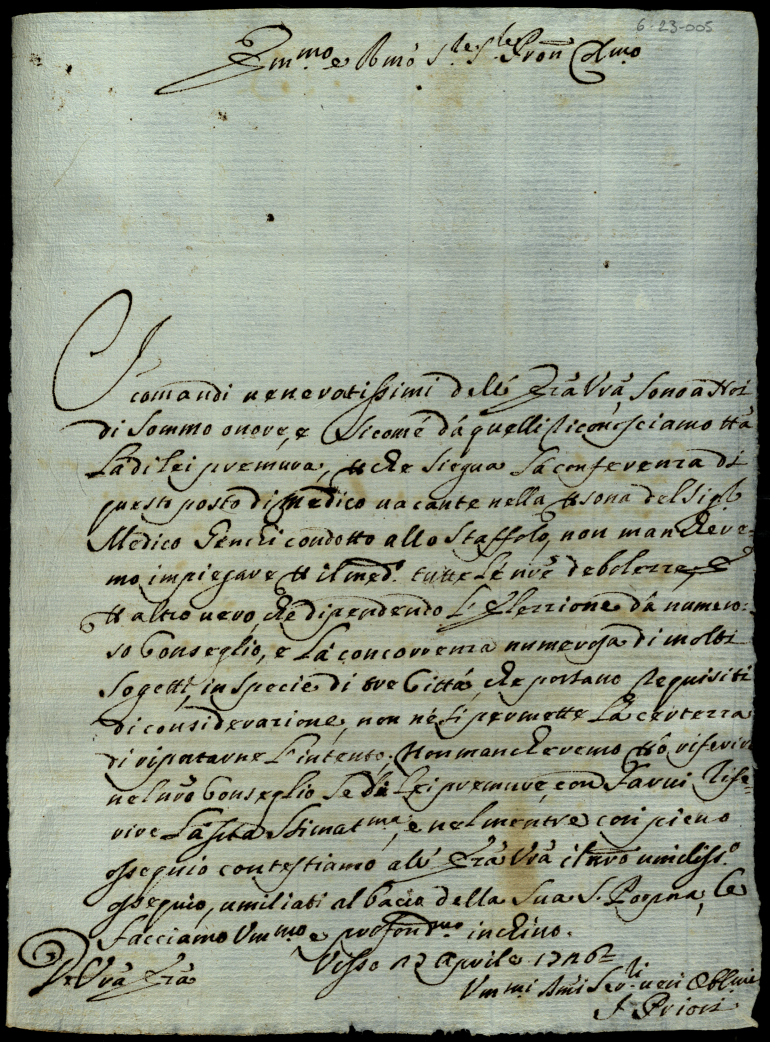 6-23-005
Em.mo e R.mo S.re S.re Pron Col.mo
I comandi veneratissimi dell' Eza Vra, sono a Noi
di sommo onore, e sicome da quelli riconosciamo tta
La di lei premura, che siegua la conferenza di
questo posto di Medico vacante nella psona del Sig.r
Medico Genchi condotto allo Staffolo, non manchere-
mo impiegare p il med.o tutte le nre debolezze, e
p altro vero, che dipendendo L'Elezzione da numero-
so Conseglio, e La concorrenza numerosa di molti
sogetti, in specie di tre Città, che portano requisiti
di considerazione, non ne si permette La certezza
di riportarne L'intento. Non mancheremo pò riferire
nel nro Conseglio le di Lei premure, con farvi
La sua Stimat.ma, e nel mentre con pieno
ossequio contestiamo all' Eza Vra il nro umiliss.o
ossequio, umiliati al bacio della Sua S. Porpora, Le
facciamo Um.mo e profond.mo inchino.
D. Vra Eza
Visso 12 Aprile 1726
Um.mi Ser.ri veri
I Priori